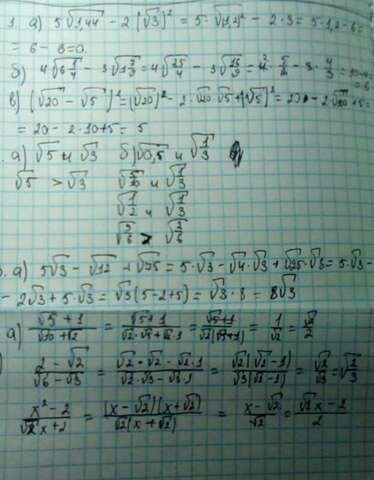 1. а) 5√1,44 − 2(√3)² = 5·√(1,2)² − 2·3 = 5·1,2 − 6 =
= 6 − 6 = 0.
б) 4√6 1/4 − 3√1 7/9 = 4√25/4 − 3√16/9 = 4·5/2 − 3·4/3 = 10−4 = 6
в) (√20 − √5)² = (√20)² − 2·√20·√5 + (√5)² = 20 − 2√100 + 5 =
= 20 − 2·10 + 5 = 5
а) √5 и √3 б) √0,5 и √1/3
√5 > √3 √5/10 и √1/3
√1/2 и √1/3
√3/6 > √2/6
а) 5√3 − √12 + √75 = 5·√3 − √4·√3 + √25·√3 = 5·√3 −
− 2√3 + 5·√3 = √3(5−2+5) = √3·8 = 8√3
а) (√5+1)/(√10+√2) = (√5+1)/(√2·√5+√2·1) = (√5+1)/(√2(√5+1)) = 1/√2 = √2/2
(2−√2)/(√6−√3) = (√2·√2−√2·1)/(√2·√3−√3·1) = √2(√2−1)/√3(√2−1) = √2/√3 = √2/3
(x²−2)/(√2x+2) = (x−√2)(x+√2)/√2(x+√2) = (x−√2)/√2 = (√2x−2)/2